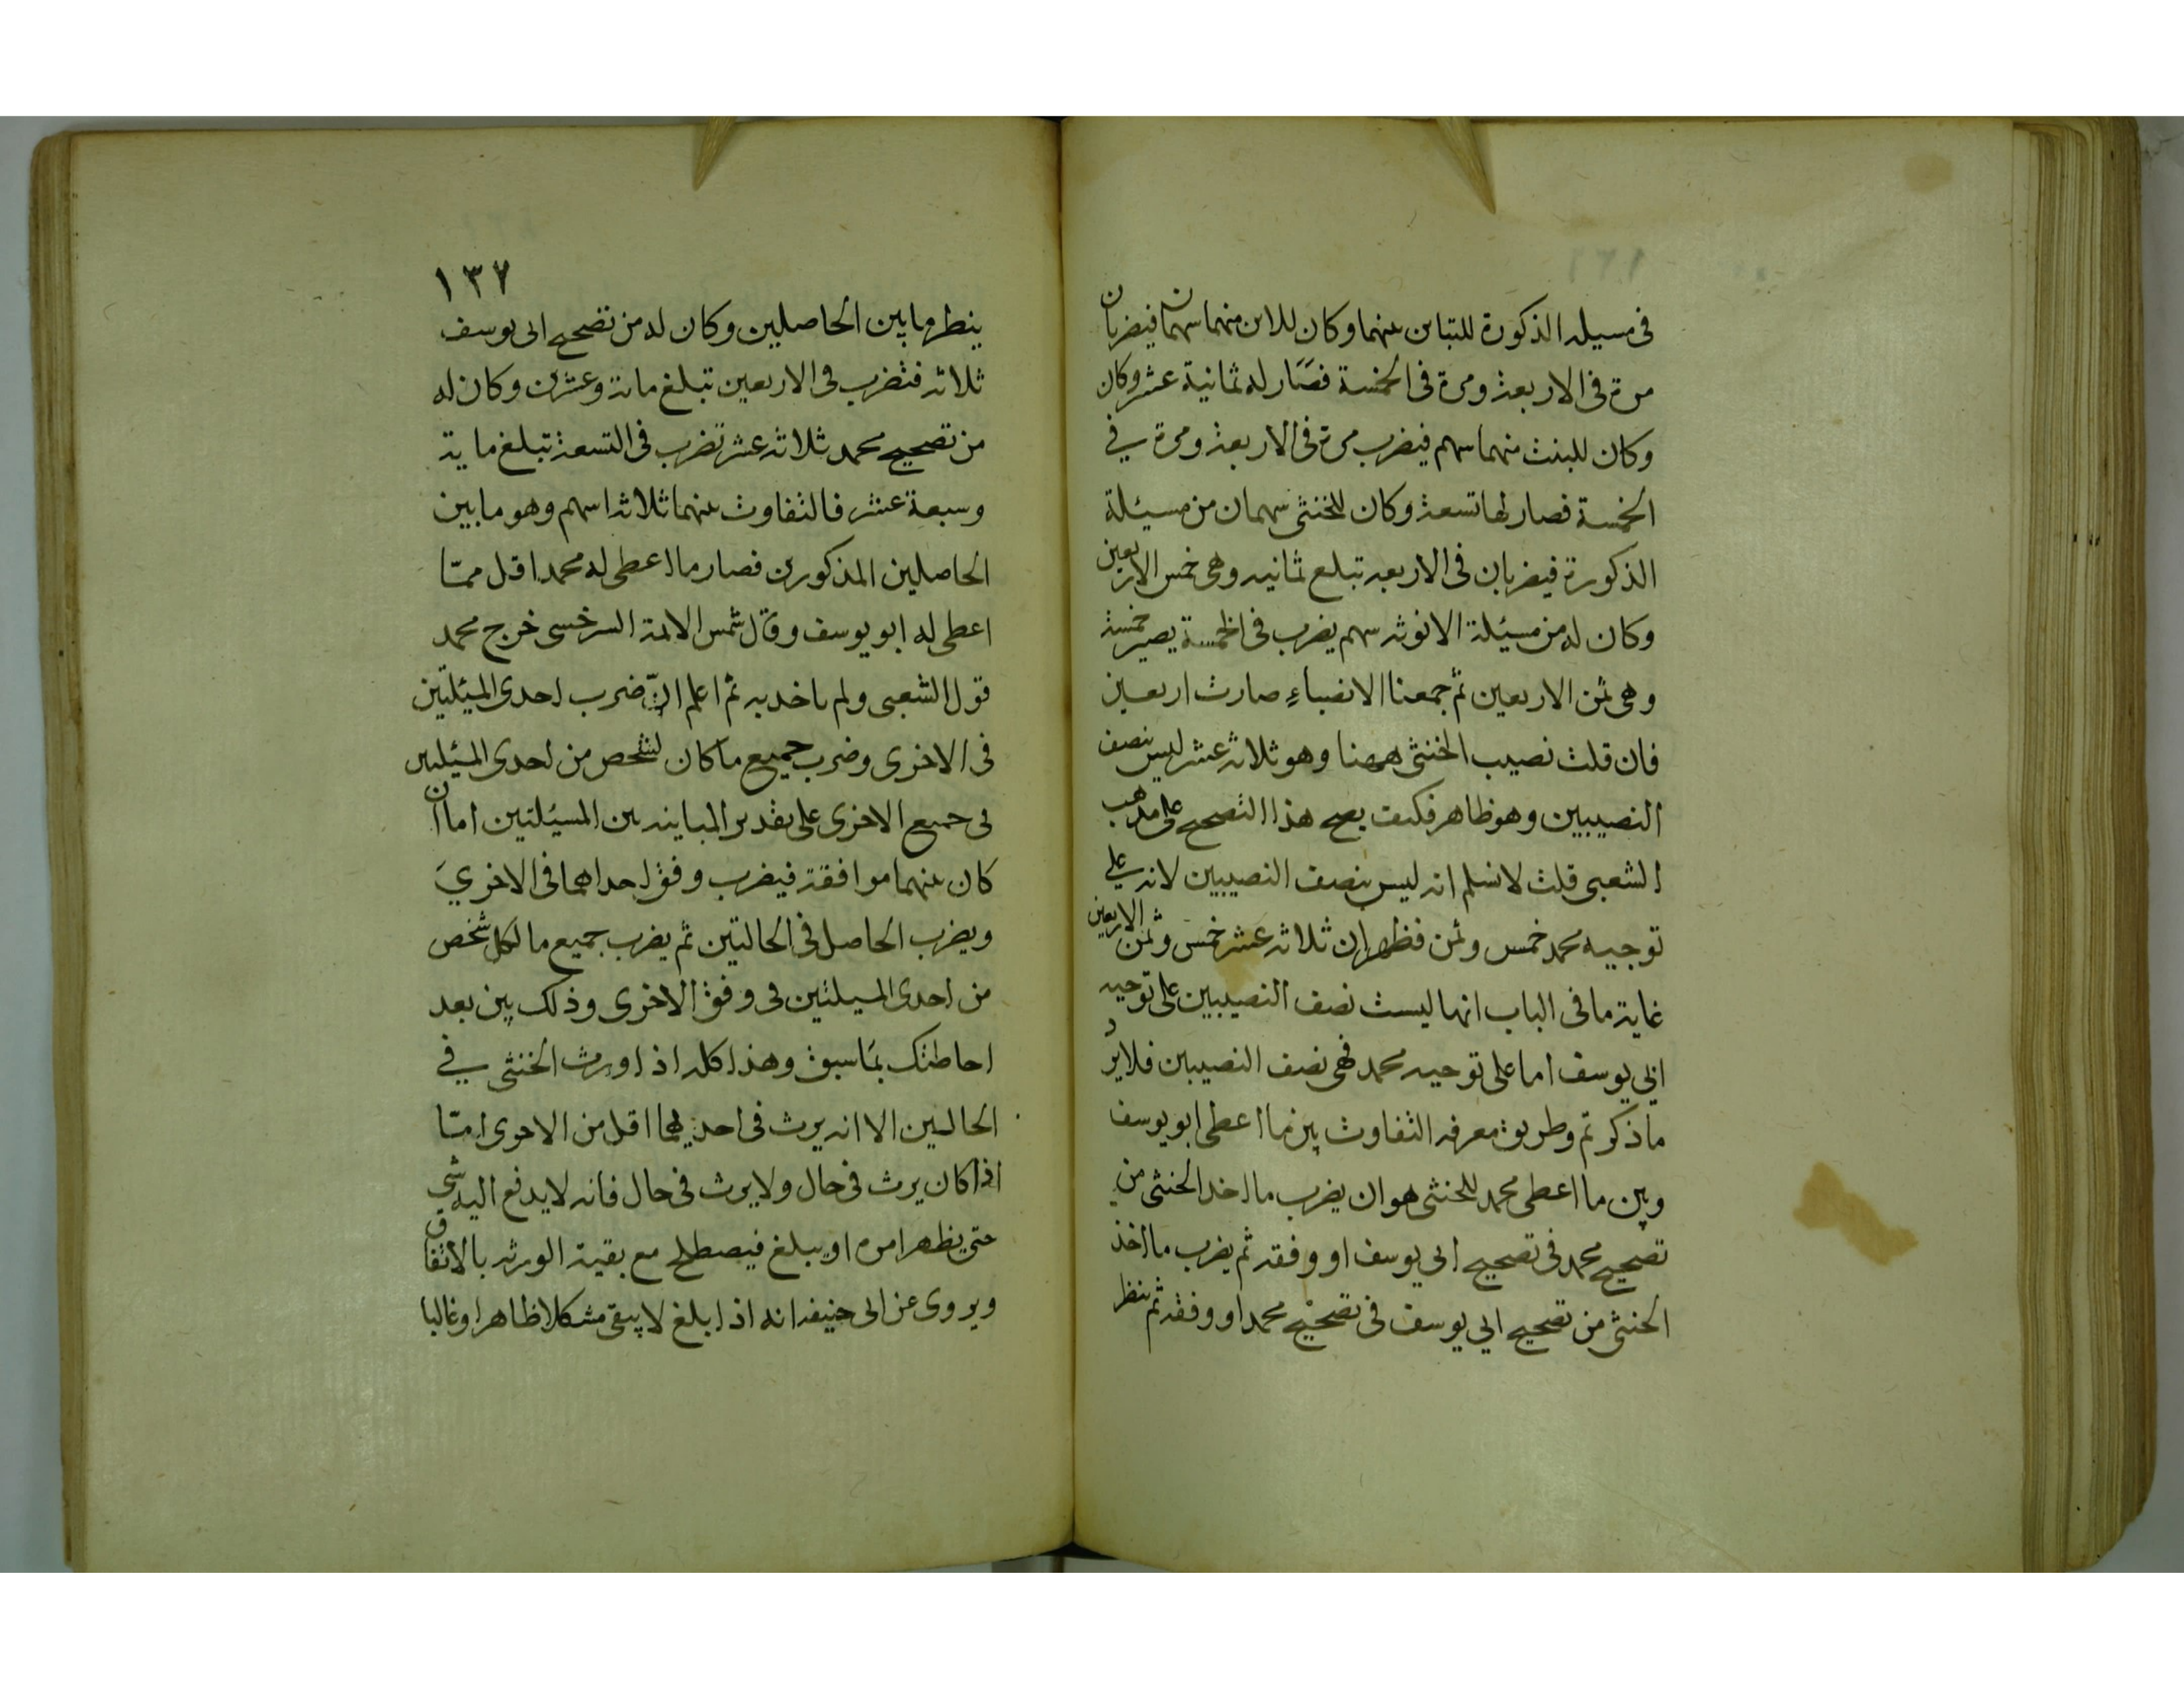 فى مسيله الذكورة للتباين بينهما وكان للابن منهما سهمان فيضربان
مرة فى الاربعة ومرة فى الخمسة فصار له ثمانية عشر وكان
وكان للبنت منهما سهم فيضرب مرة فى الاربعة ومرة في
الخمسة فصار لها تسعة وكان للخنثى سهمان من مسيئلة
الذكورة فيضربان فى الاربعه تبلغ ثمانيه وهى خمس الاربعين
وكان له من مسيئلة الانوثه سهم يضرب فى الخمسة يصير خمسة
وهى ثمن الاربعين ثم جمعنا الانصباء صارت اربعين
فان قلت نصيب الخنثى ههنا وهو ثلاثة عشر ليس بنصف
النصيبين وهو ظاهر فكيف يصح هذا التصحيح على مذهب
الشعبى قلت لا نسلم انه ليس بنصف النصيبين لانه علي
توجيه محمد خمس وثمن فظهر ان ثلاثه عشر خمس وثمن الاربعين
غاية ما فى الباب انها ليست نصف النصيبين على توجيه
ابي يوسف اما على توجيه محمد فهى نصف النصيبين فلا يرد
ما ذكرتم وطريق معرفه التفاوت بين ما اعطى ابو يوسف
وبين ما اعطى محمد للخنثى هو ان يضرب ما اخذ الخنثى من
تصحيح محمد فى تصحيح ابى يوسف او وفقه ثم يضرب ما اخذ
الخنثى من تصحيح ابي يوسف فى تصحيح محمد او وفقه ثم ينظر
١٣٧
ينظر ما بين الحاصلين وكان له من تصحيح ابى يوسف
ثلاثه فتضرب فى الاربعين تبلغ مائة وعشرين وكان له
من تصحيح محمد ثلاثه عشر تضرب فى التسعة تبلغ ماية
وسبعة عشر فالتفاوت بينهما ثلاثة اسهم وهو ما بين
الحاصلين المذكورين فصار ما اعطى له محمد اقل ممّا
اعطى له ابو يوسف وقال شمس الائمة السرخسى خرج محمد
قول الشعبى ولم ياخذ به ثم اعلم انّ ضرب احدى المسئلتين
فى الاخرى وضرب جميع ما كان لشخص من احدى المسئلتين
فى جميع الاخرى على تقدير المباينه بين المسيئلتين اما ان
كان بينهما موافقة فيضرب وفق احداهما فى الاخري
ويضرب الحاصل فى الحالتين ثم يضرب جميع ما لكل شخص
من احدى المسيلتين فى وفق الاخرى وذلك بين بعد
احاطتك بما سبق وهذا كله اذا ورث الخنثى في
الحالتين الا انه يرث فى احديهما اقل من الاخرى امّا
اذا كان يرث فى حال ولا يرث فى حال فانه لا يدفع اليه شي
حتى يظهر امره او يبلغ فيصطلح مع بقية الورثه بالاتفاق
ويروى عن ابى حنيفه انه اذا بلغ لا يبقى مشكلا ظاهرا وغالبا